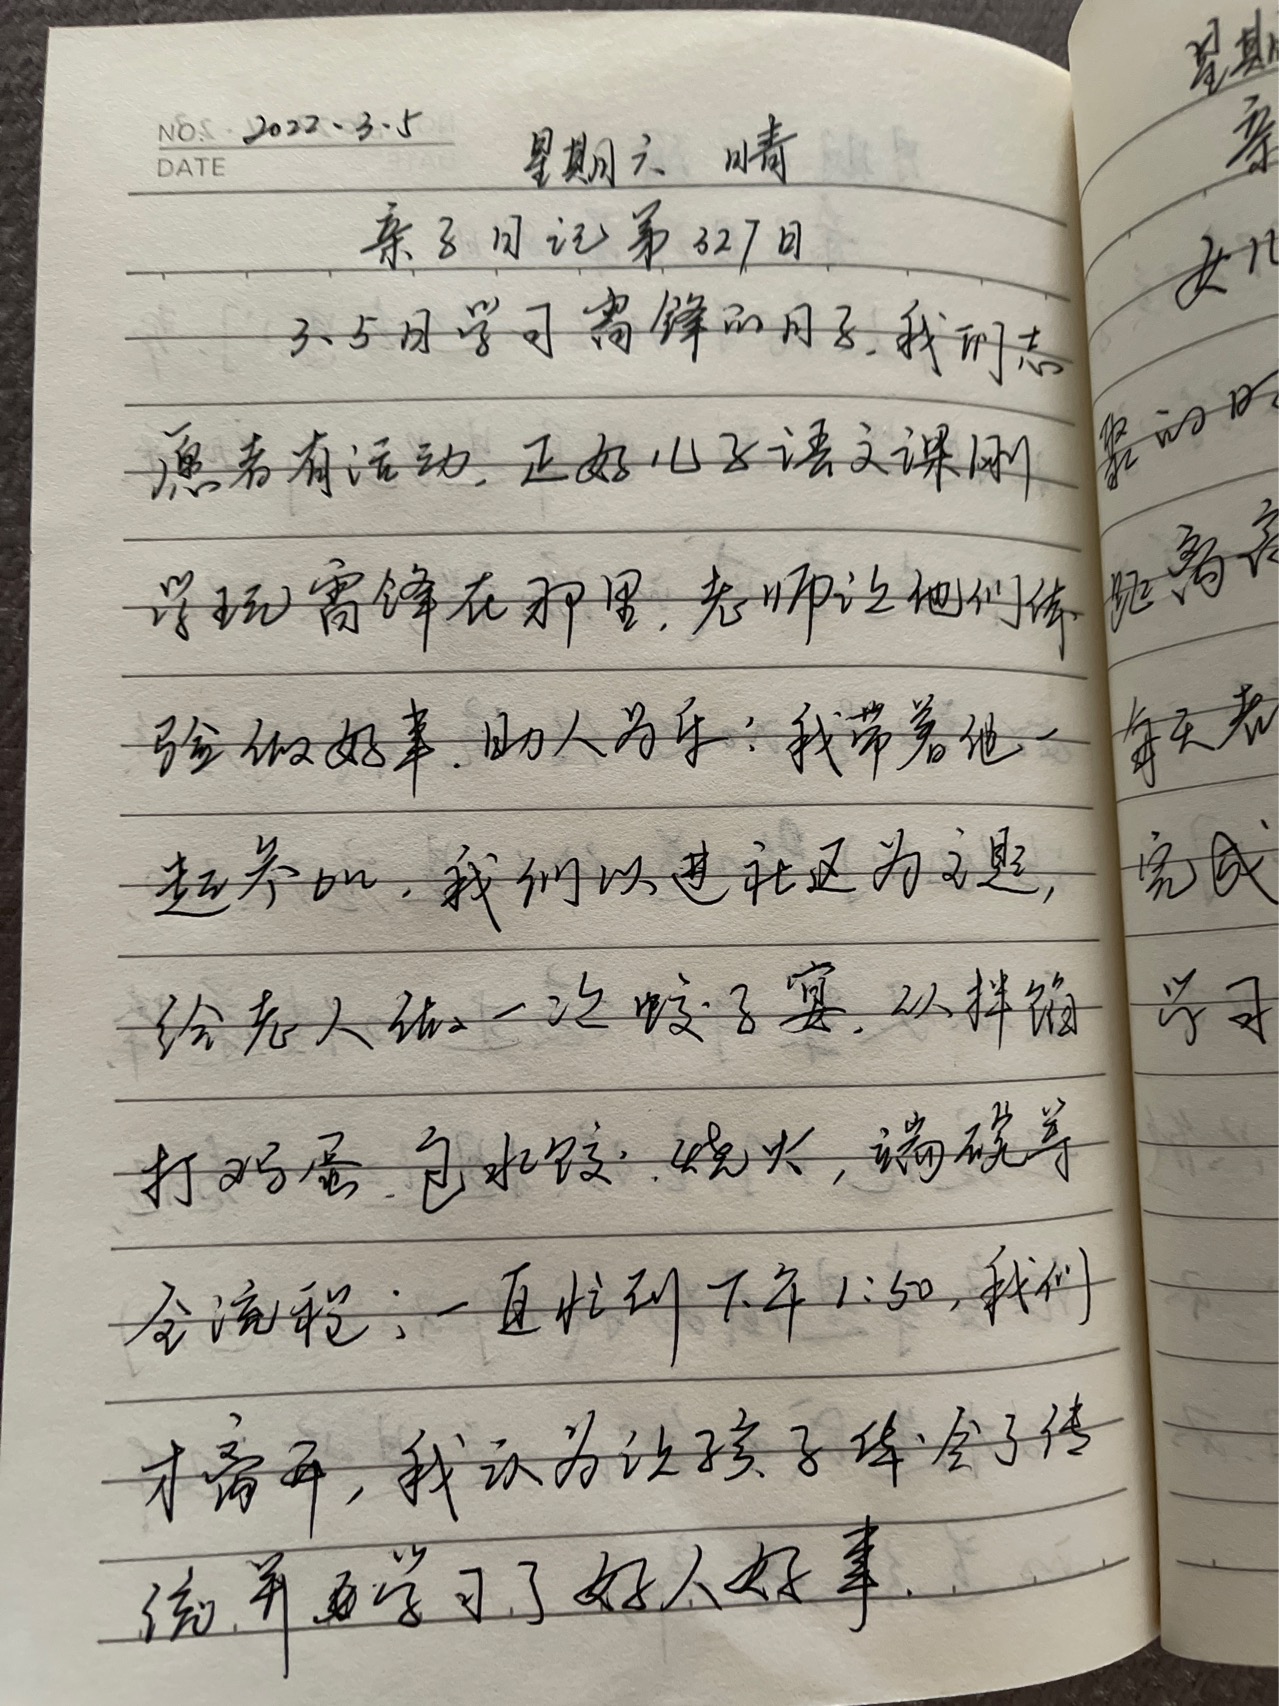 NO. 2022.3.5
DATE
星期六 晴
亲子日记第327日
3.5月学习雷锋的月子.我们志
愿者有活动.正好儿子语文课刚
学玩雷锋在那里.老师让他们体
验做好事.助人为乐:我带着他一
起参加.我们以进社区为主题,
给老人做一次饺子宴.从拌馅
打鸡蛋.包水饺.烧火,端碗等
全流程;一直忙到下午1:50,我们
才离开,我认为让孩子体会了传
统.并再学习了好人好事.
星期
亲
女儿
聚的时
距离
每天老
完成
学习